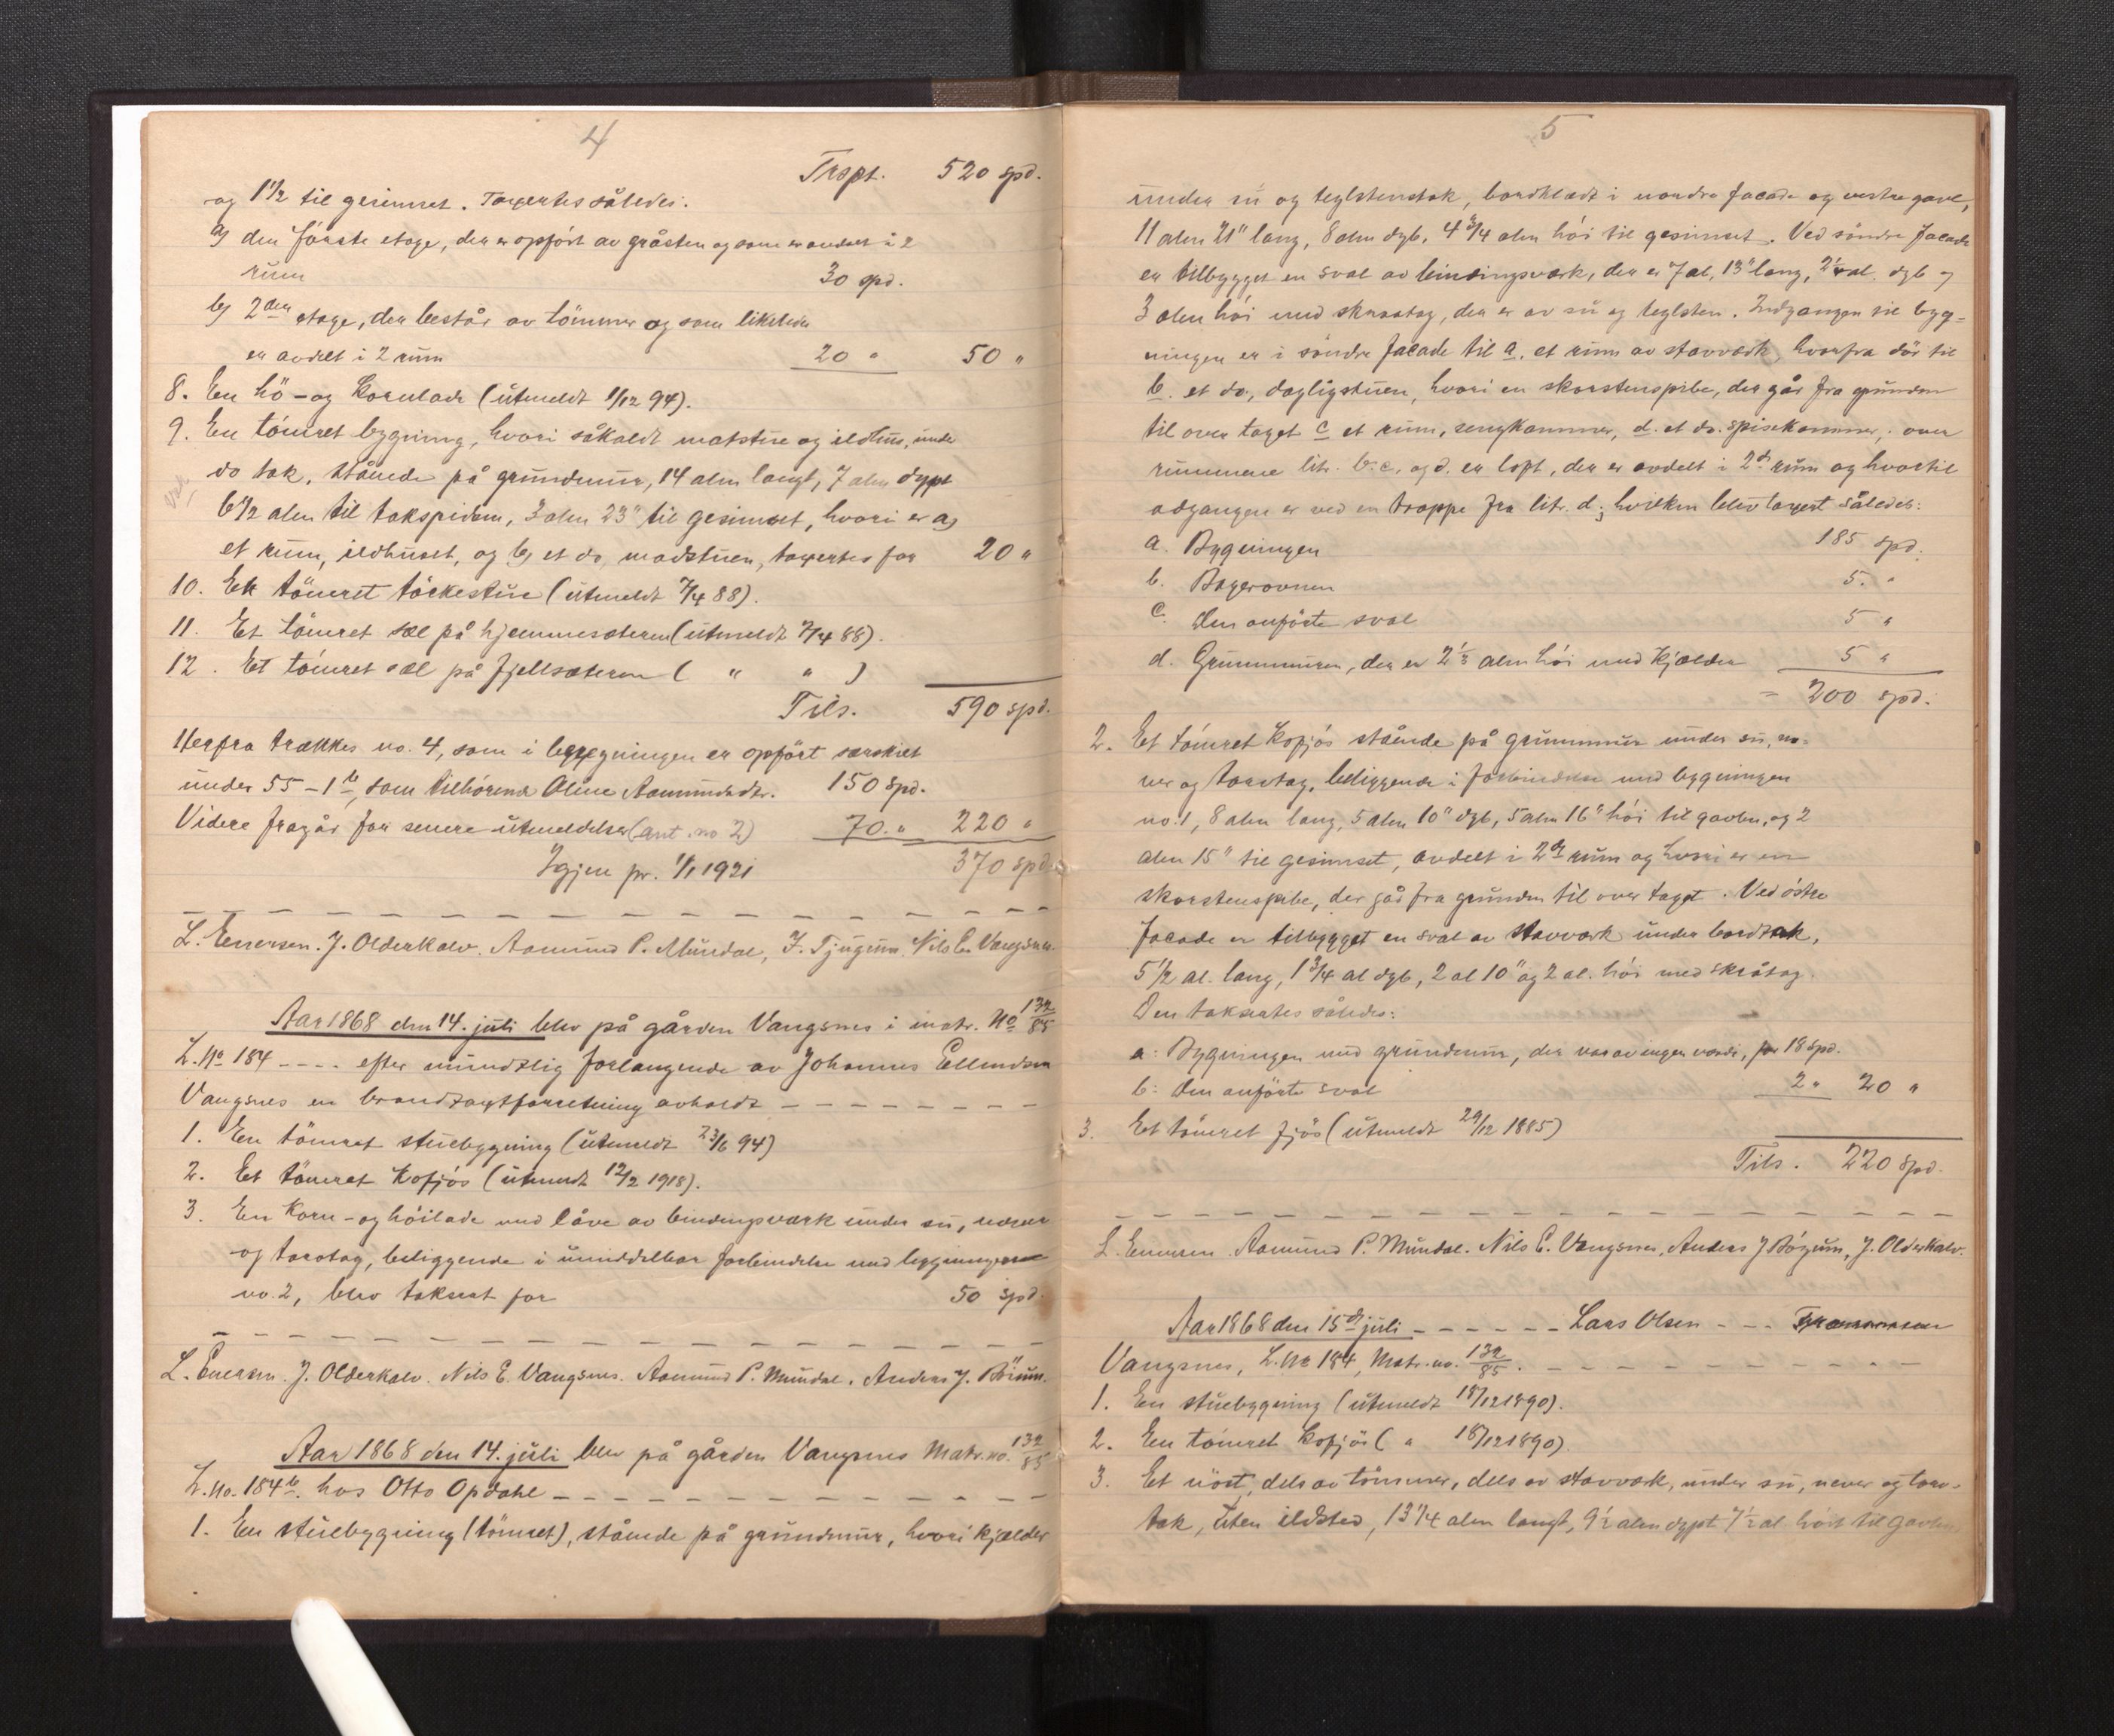 4
Trspt. 520 spd.
og 1 1/2 til gesimset. Taxertes således.
a) den første etage, der er opført av gråsten og som er avdelt i 2
rum 30 spd.
b) 2den etage, der består av tömmer og som likeledes
er avdelt i 2 rum 20 " 50 "
8. En hö- og Kornlade (útmeldt 1/12 94).
9. En tömret bygning, hvori såkaldt matstue og ildhus, under
do tak, stående på grundmur, 14 alen langt, 7 alen dypt
6 1/2 alen til takspidsen, 3 alen 23" til gesimset, hvori er a)
et rum, ildhuset, og b) et do, madstuen, taxertes for 20 "
10. En tömret törkestue (útmeldt 7/4 88).
11. Et tömret sæl på hjemmesæteren (útmeldt 7/4 88).
12. Et tömret sæl på fjellsæteren ( " " )
Tils. 590 spd.
Herfra trækkes no. 4, som i beregningen er opfört særskilt
under 55 - 1 b, som tilhörende Oline Aamundsdtr. 150 spd.
Videre fragår for senere útmeldelser (ant. no 2) 70. " 220 "
Igjen pr. 1/1 1921 370 spd.
L. Enersen. J. Olderkalv. Aamund P. Mundal, I. Tjugum. Nils E. Vangsnes.
Aar 1868 den 14. juli blev på gården Vangsnes i matr. No 132/85
L. No 184 ---- efter mundtlig forlangende av Johannes Ellendsen
Vangsnes en brandtaxtforretning avholdt
1. En tömret stuebygning (útmeldt 23/6 94)
2. Et tömret Kofjös (útmeldt 12/2 1918).
3. En Korn- og höilade med låve av bindingsværk under su, næver
og torvtag, beliggende i umiddelbar forbindelse med bygningen
no. 2, blev taksert for 50 spd.
L. Enersen. J. Olderkalv. Nils E. Vangsnes. Aamund P. Mundal. Anders J.
Aar 1868 den 14. juli blev på gården Vangsnes Matr. no. 132/85
L. No. 184 b. hos Otto Opdahl
1. En stuebygning (tömret), stående på grundmur, hvori kjælder
5
under su og teglstenstak, bordklædt i nordre facade og vestre gavl,
11 alen 21" lang, 8 alen dyb, 4 3/4 alen höi til gesimset. Ved söndre facade
er tilbygget en sval av bindingsværk, der er 7 al, 13" lang, 2 1/2 al. dyb og
3 alen höi med skraatag, der er av su og teglsten. Indgangen til byg-
ningen er i söndre facade til a. et rum av stavværk, hvorfra dör til
b. et do, dagligstuen, hvori en skorstenspibe, der går fra grunden
til over taget c et rum, sengkammer, d. et do. spisekammer, over
rummene litr. b. c. og d. er loft, der er avdelt i 2de rum og hvortil
adgangen er ved en trappe fra litr. d; hvilken blev taxert således:
a. Bygningen 185 spd.
b. Bagerovnen 5. "
c. Den anförte sval 5 "
d. Grunnmuren, der er 2 1/2 alen höi med Kjælder 5 "
= 200 spd.
2. Et tömret Kofjös stående på grunnmur under su, næ-
ver og torvtag, beliggende i forbindelse med bygningen
no. 1, 8 alen lang, 5 alen 10" dyb, 5 alen 16" höi til gavlen, og 2
alen 15" til gesimset, avdelt i 2de rum og hvori er en
skorstenspibe, der går fra grunden til over taget. Ved östre
facade er tilbygget en sval av stavværk under bordtak,
5 1/2 al. lang, 1 3/4 al dyb, 2 al 10" og 2 al. höi med skråtag.
Den taksertes således:
a: Bygningen med grundmur, der var av ingen værdi, for 18 spd.
b: Den anförte sval 2 " 20 "
3. Et tömret fjös (útmeldt 29/12 1885)
Tils. 220 spd.
L. Enersen. Aamund P. Mundal. Nils E. Vangsnes, Anders J Bögum, J. Olderkalv.
Aar 1868 den 15de juli ------ Lars Olsen ---
Vangsnes, L. No 184, Matr. no. 132/85.
1. En stuebygning (útmeldt 18/12 1890).
2. En tömret Kofjös ( " 18/12 1890)
3. Et nöst, dels av tömmer, dels av stavværk, under su, never og torv-
tak, uten ildsted, 13 1/4 alen langt, 9 1/2 alen dypt 7 1/2 al. höit til gavlen